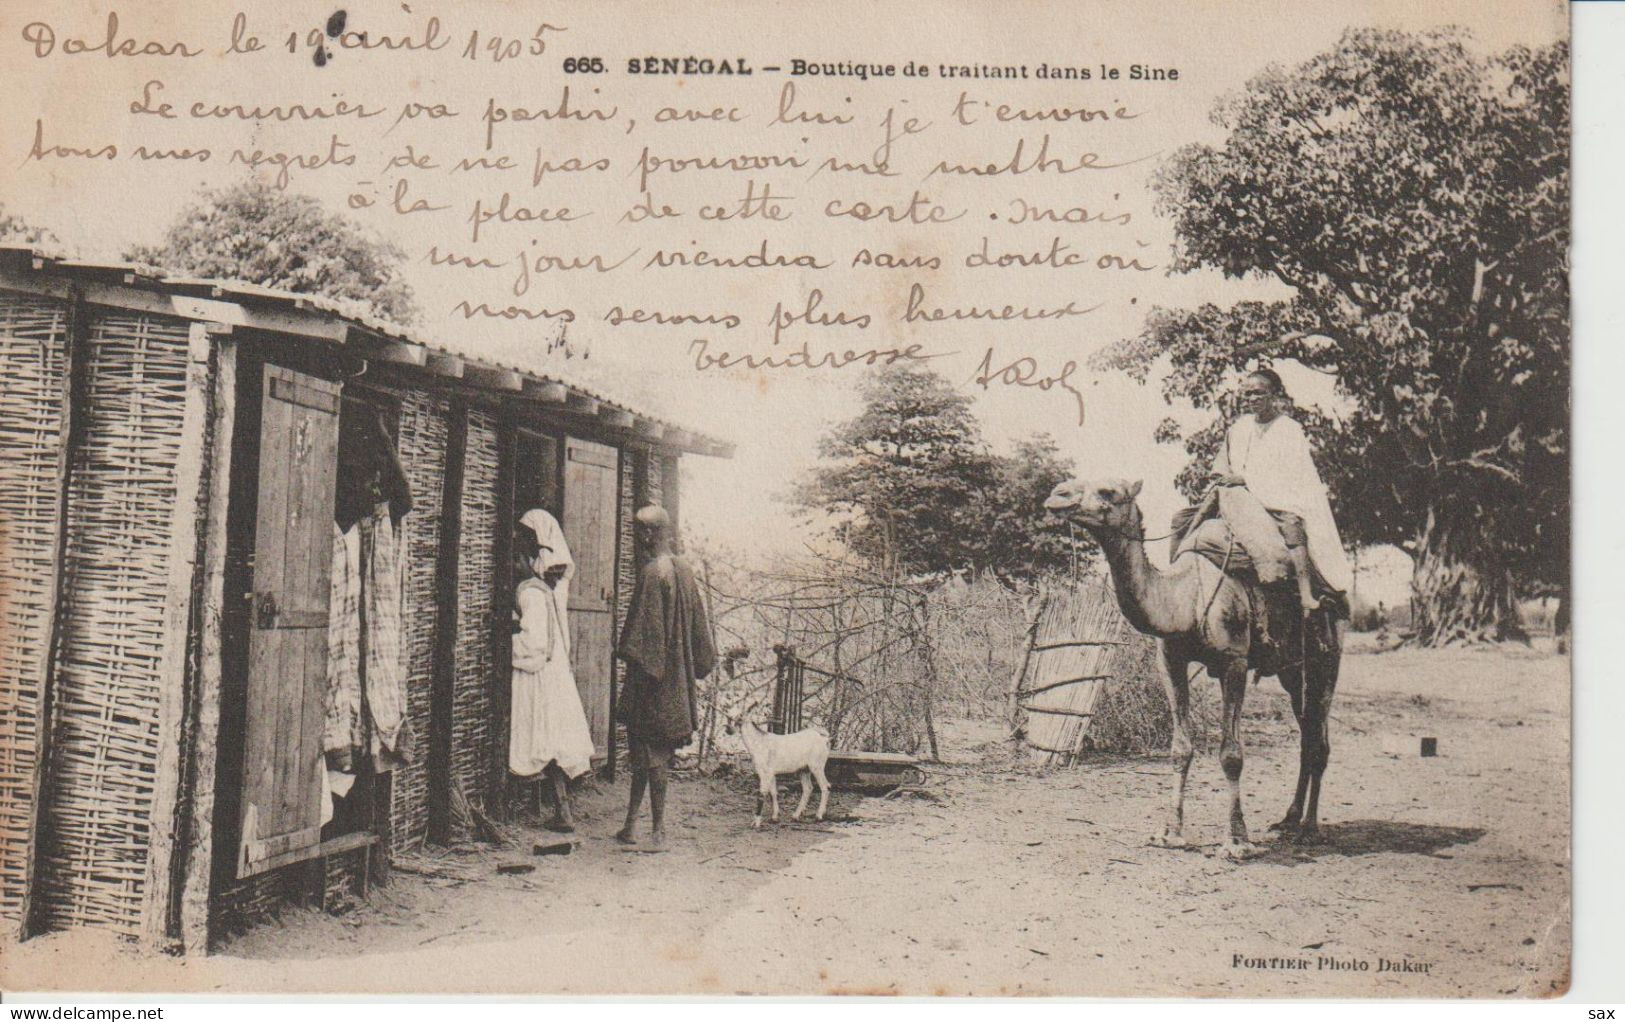 Dakar le 19 avril 1905
665. SÉNÉGAL — Boutique de traitant dans le Sine
Le courrier va partir, avec lui je t'envoie
tous mes regrets de ne pas pouvoir me mettre
à la place de cette carte. Mais
un jour viendra sans doute où
nous serons plus heureux.
Tendresse
FORTIER Photo Dakar
sax